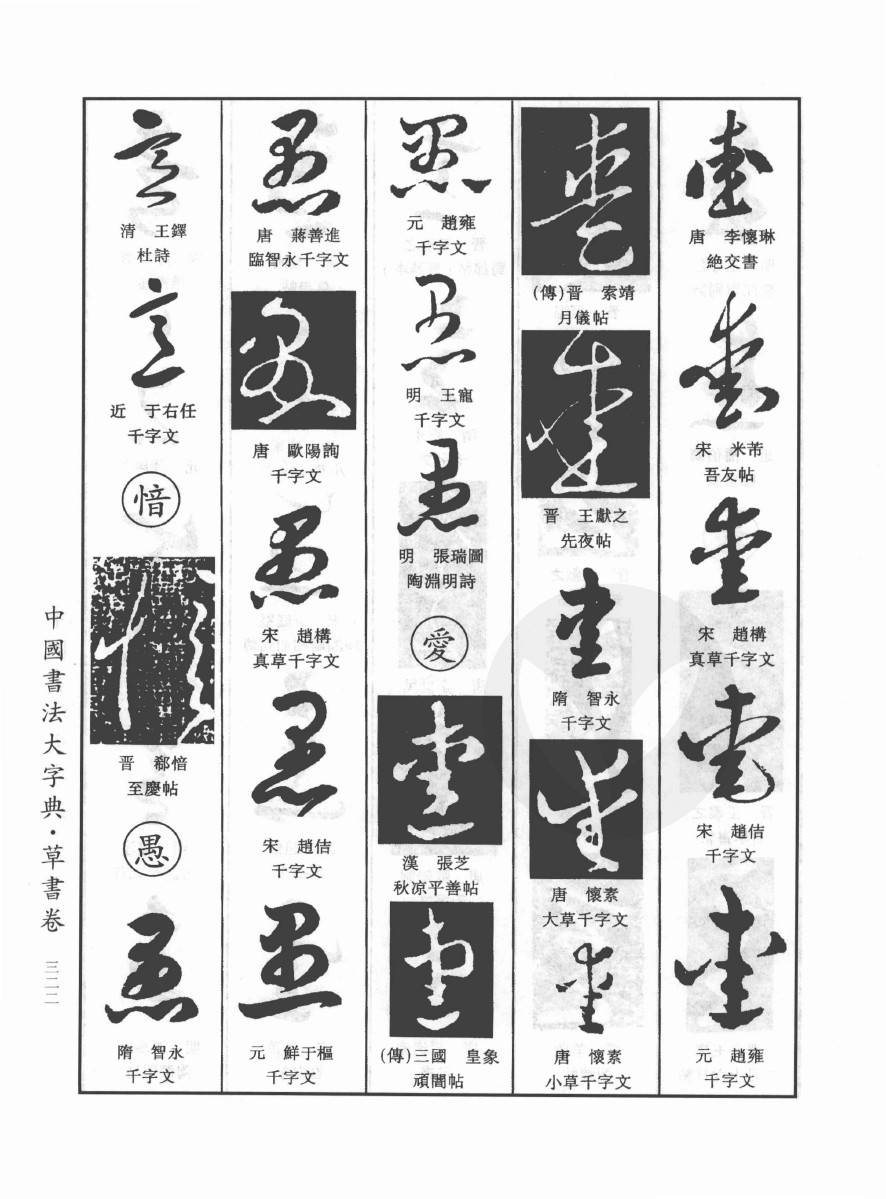 中國書法大字典·草書卷
三二二
意
清 王鐸
杜詩
意
近 于右任
千字文
愔
愔
晋 郗愔
至慶帖
愚
愚
隋 智永
千字文
愚
唐 蔣善進
臨智永千字文
愚
唐 歐陽詢
千字文
愚
宋 趙構
真草千字文
愚
宋 趙佶
千字文
愚
元 鮮于樞
千字文
愚
元 趙雍
千字文
愚
明 王寵
千字文
愚
明 張瑞圖
陶淵明詩
愛
愛
漢 張芝
秋凉平善帖
愛
(傳)三國 皇象
頑闇帖
愛
(傳)晋 索靖
月儀帖
愛
晋 王獻之
先夜帖
愛
隋 智永
千字文
愛
唐 懷素
大草千字文
愛
唐 懷素
小草千字文
愛
唐 李懷琳
絶交書
愛
宋 米芾
吾友帖
愛
宋 趙構
真草千字文
愛
宋 趙佶
千字文
愛
元 趙雍
千字文